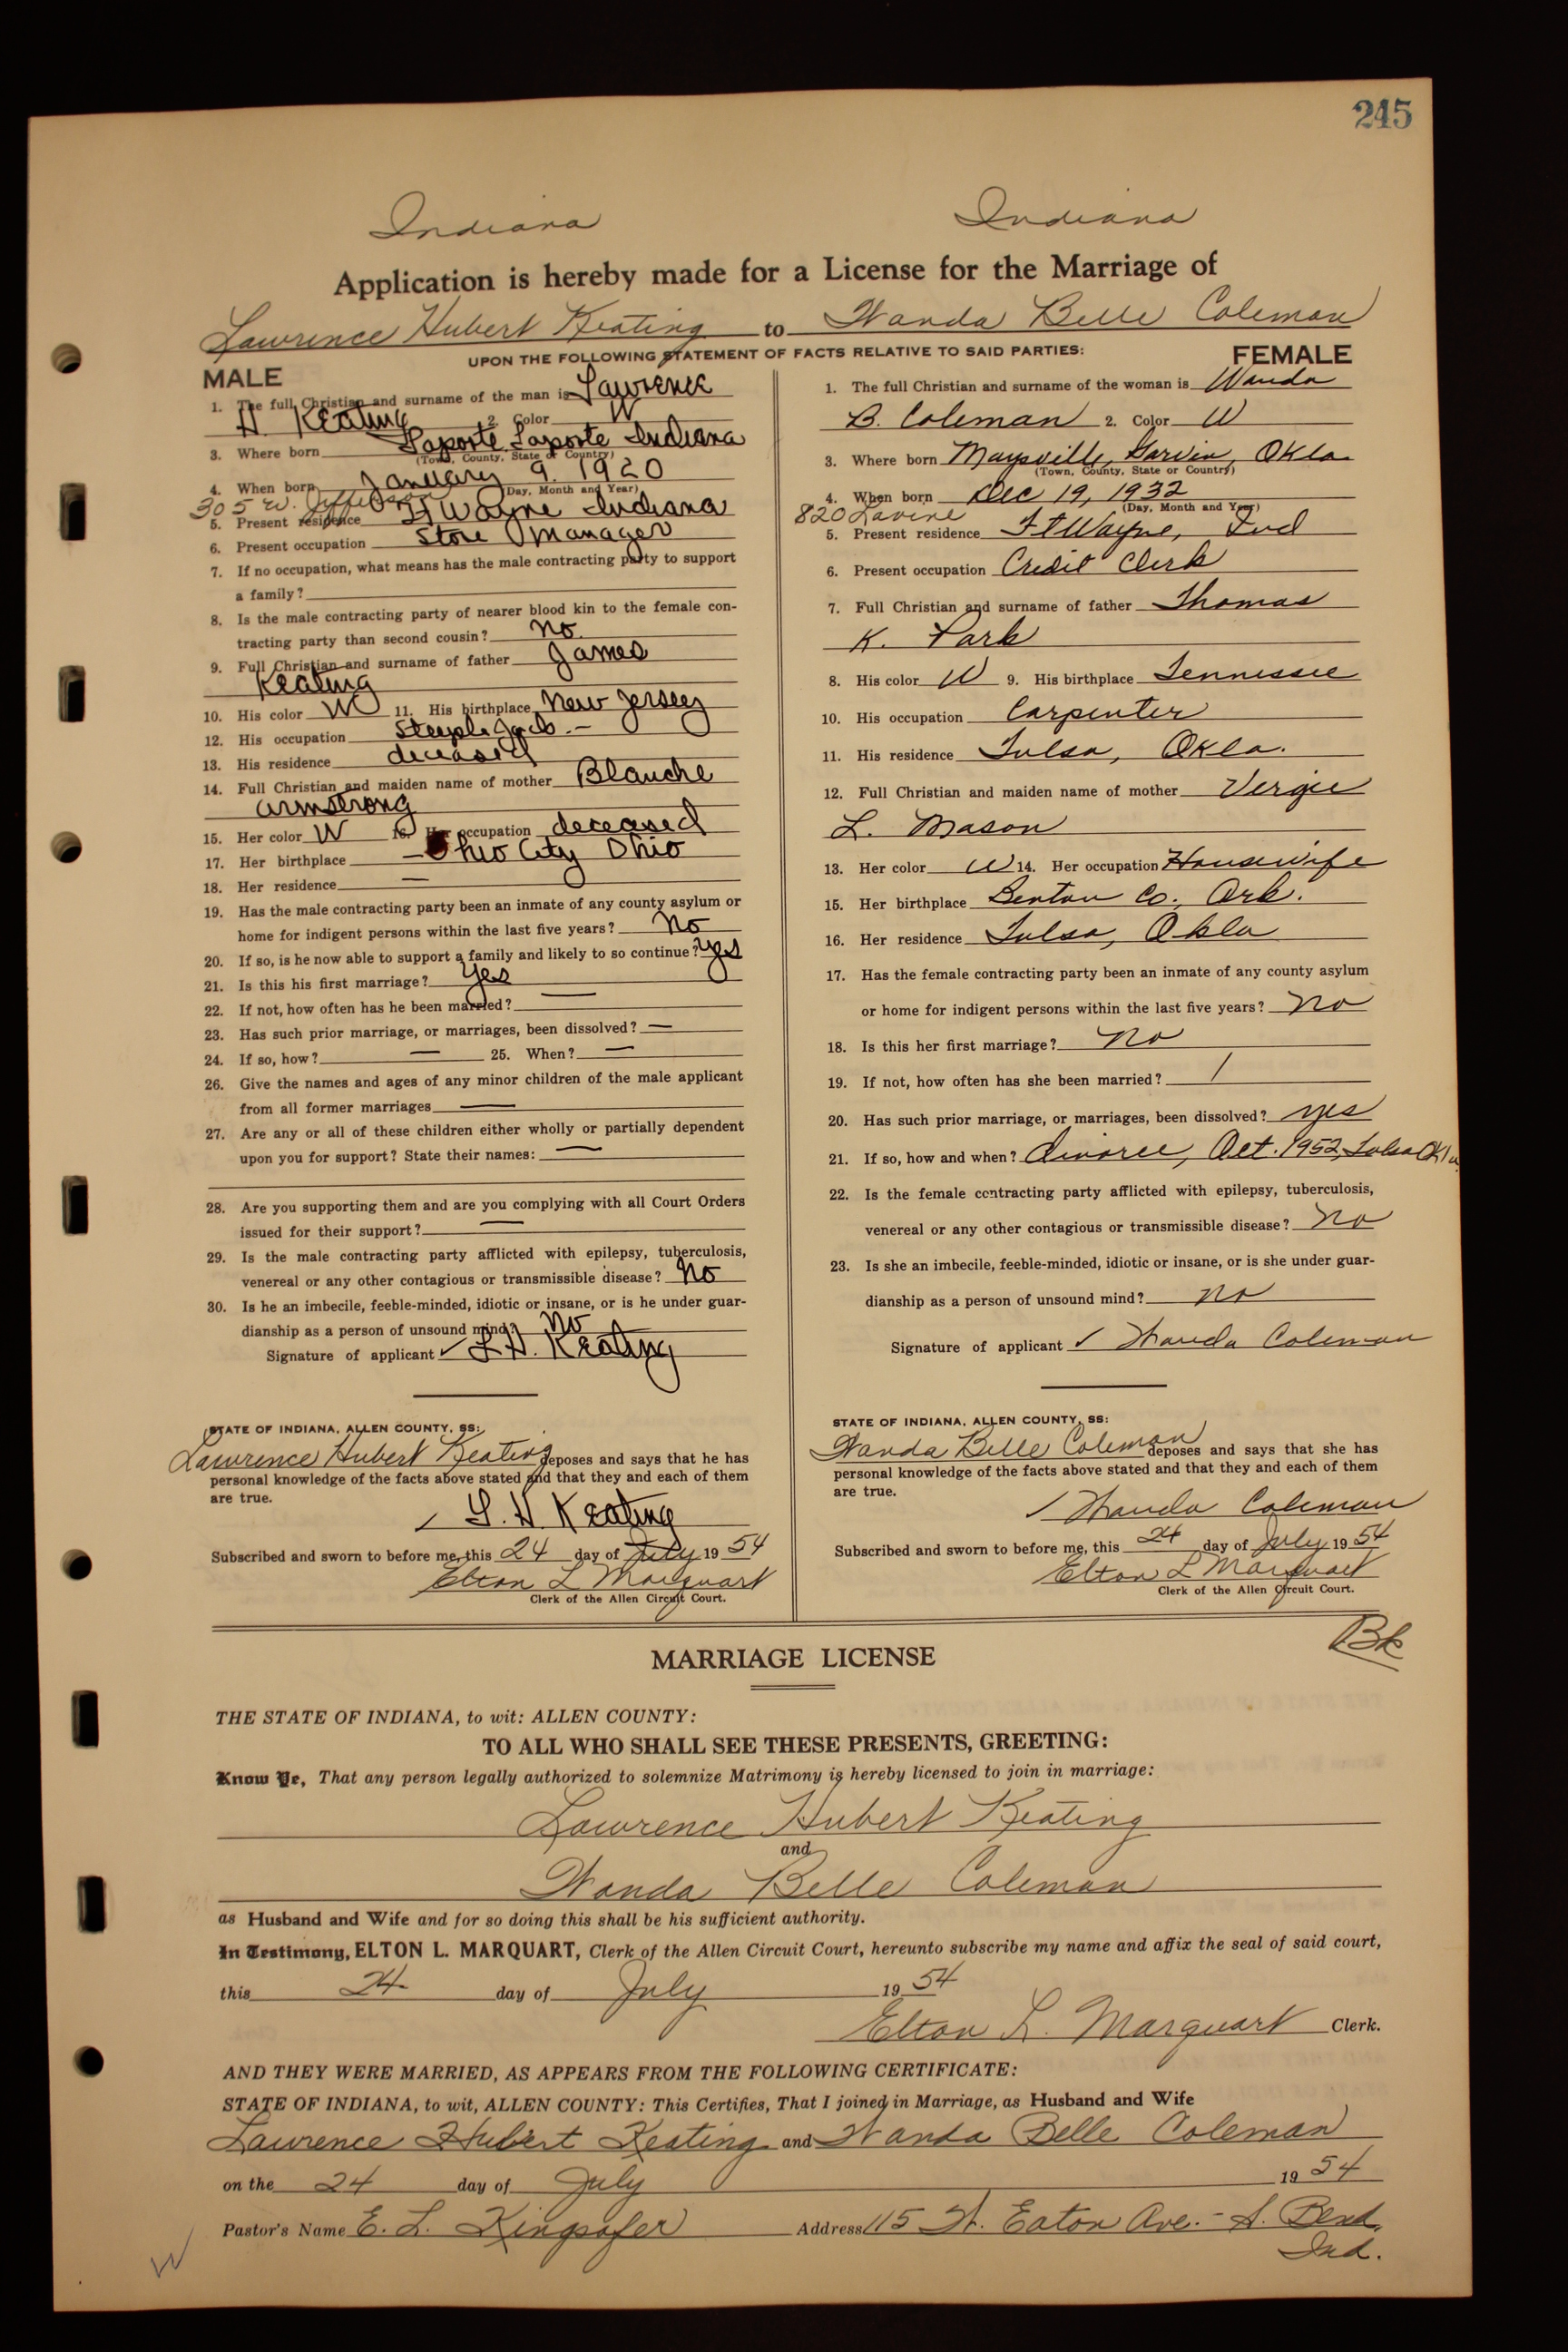 245
Indiana Indiana
Application is hereby made for a License for the Marriage of
Lawrence Hubert Keating to Wanda Belle Coleman
UPON THE FOLLOWING STATEMENT OF FACTS RELATIVE TO SAID PARTIES:
MALE
1. The full Christian and surname of the man is Lawrence
H. Keating 2. Color W
3. Where born Laporte Laporte Indiana
(Town, County, State or Country)
4. When born January 9. 1920
(Day, Month and Year)
305 W. Jefferson
5. Present residence Ft Wayne Indiana
6. Present occupation Store Manager
7. If no occupation, what means has the male contracting party to support
a family?
8. Is the male contracting party of nearer blood kin to the female con-
tracting party than second cousin? no.
9. Full Christian and surname of father James
Keating
10. His color W 11. His birthplace New Jersey
12. His occupation Steeple Jack. -
13. His residence deceased
14. Full Christian and maiden name of mother Blanche
Armstrong
15. Her color W 16. Her occupation deceased
17. Her birthplace - Ohio City Ohio
18. Her residence —
19. Has the male contracting party been an inmate of any county asylum or
home for indigent persons within the last five years? No
20. If so, is he now able to support a family and likely to so continue? yes
21. Is this his first marriage? yes
22. If not, how often has he been married? —
23. Has such prior marriage, or marriages, been dissolved? —
24. If so, how? — 25. When? —
26. Give the names and ages of any minor children of the male applicant
from all former marriages —
27. Are any or all of these children either wholly or partially dependent
upon you for support? State their names: —
28. Are you supporting them and are you complying with all Court Orders
issued for their support? —
29. Is the male contracting party afflicted with epilepsy, tuberculosis,
venereal or any other contagious or transmissible disease? No
30. Is he an imbecile, feeble-minded, idiotic or insane, or is he under guar-
dianship as a person of unsound mind? No
Signature of applicant ✓ L. H. Keating
STATE OF INDIANA, ALLEN COUNTY, SS:
Lawrence Hubert Keating deposes and says that he has
personal knowledge of the facts above stated and that they and each of them
are true.
✓ L. H Keating
Subscribed and sworn to before me, this 24 day of July 19 54
Elton L Marquart
Clerk of the Allen Circuit Court.
FEMALE
1. The full Christian and surname of the woman is Wanda
B. Coleman 2. Color W
3. Where born Maysville, Garvin, Okla.
(Town, County, State or Country)
4. When born Dec 19, 1932
(Day, Month and Year)
820 Lavine
5. Present residence Ft Wayne, Ind
6. Present occupation Credit Clerk
7. Full Christian and surname of father Thomas
K. Park
8. His color W 9. His birthplace Tennessee
10. His occupation Carpenter
11. His residence Tulsa, Okla.
12. Full Christian and maiden name of mother Vergie
L. Mason
13. Her color W 14. Her occupation Housewife
15. Her birthplace Benton Co., Ark.
16. Her residence Tulsa, Okla
17. Has the female contracting party been an inmate of any county asylum
or home for indigent persons within the last five years? No
18. Is this her first marriage? No
19. If not, how often has she been married? 1
20. Has such prior marriage, or marriages, been dissolved? yes
21. If so, how and when? divorce, Oct. 1952, Tulsa Okla
22. Is the female contracting party afflicted with epilepsy, tuberculosis,
venereal or any other contagious or transmissible disease? No
23. Is she an imbecile, feeble-minded, idiotic or insane, or is she under guar-
dianship as a person of unsound mind? no
Signature of applicant ✓ Wanda Coleman
STATE OF INDIANA, ALLEN COUNTY, SS:
Wanda Belle Coleman deposes and says that she has
personal knowledge of the facts above stated and that they and each of them
are true.
✓ Wanda Coleman
Subscribed and sworn to before me, this 24 day of July 19 54
Elton L Marquart
Clerk of the Allen Circuit Court.
Bk
MARRIAGE LICENSE
THE STATE OF INDIANA, to wit: ALLEN COUNTY:
TO ALL WHO SHALL SEE THESE PRESENTS, GREETING:
Know Ye, That any person legally authorized to solemnize Matrimony is hereby licensed to join in marriage:
Lawrence Hubert Keating
and
Wanda Belle Coleman
as Husband and Wife and for so doing this shall be his sufficient authority.
In Testimony, ELTON L. MARQUART, Clerk of the Allen Circuit Court, hereunto subscribe my name and affix the seal of said court,
this 24 day of July 19 54
Elton L. Marquart Clerk.
AND THEY WERE MARRIED, AS APPEARS FROM THE FOLLOWING CERTIFICATE:
STATE OF INDIANA, to wit, ALLEN COUNTY: This Certifies, That I joined in Marriage, as Husband and Wife
Lawrence Hubert Keating and Wanda Belle Coleman
on the 24 day of July 19 54
Pastor's Name E. L. Kingsafer Address 115 W. Eaton Ave. - S. Bend,
Ind.
W